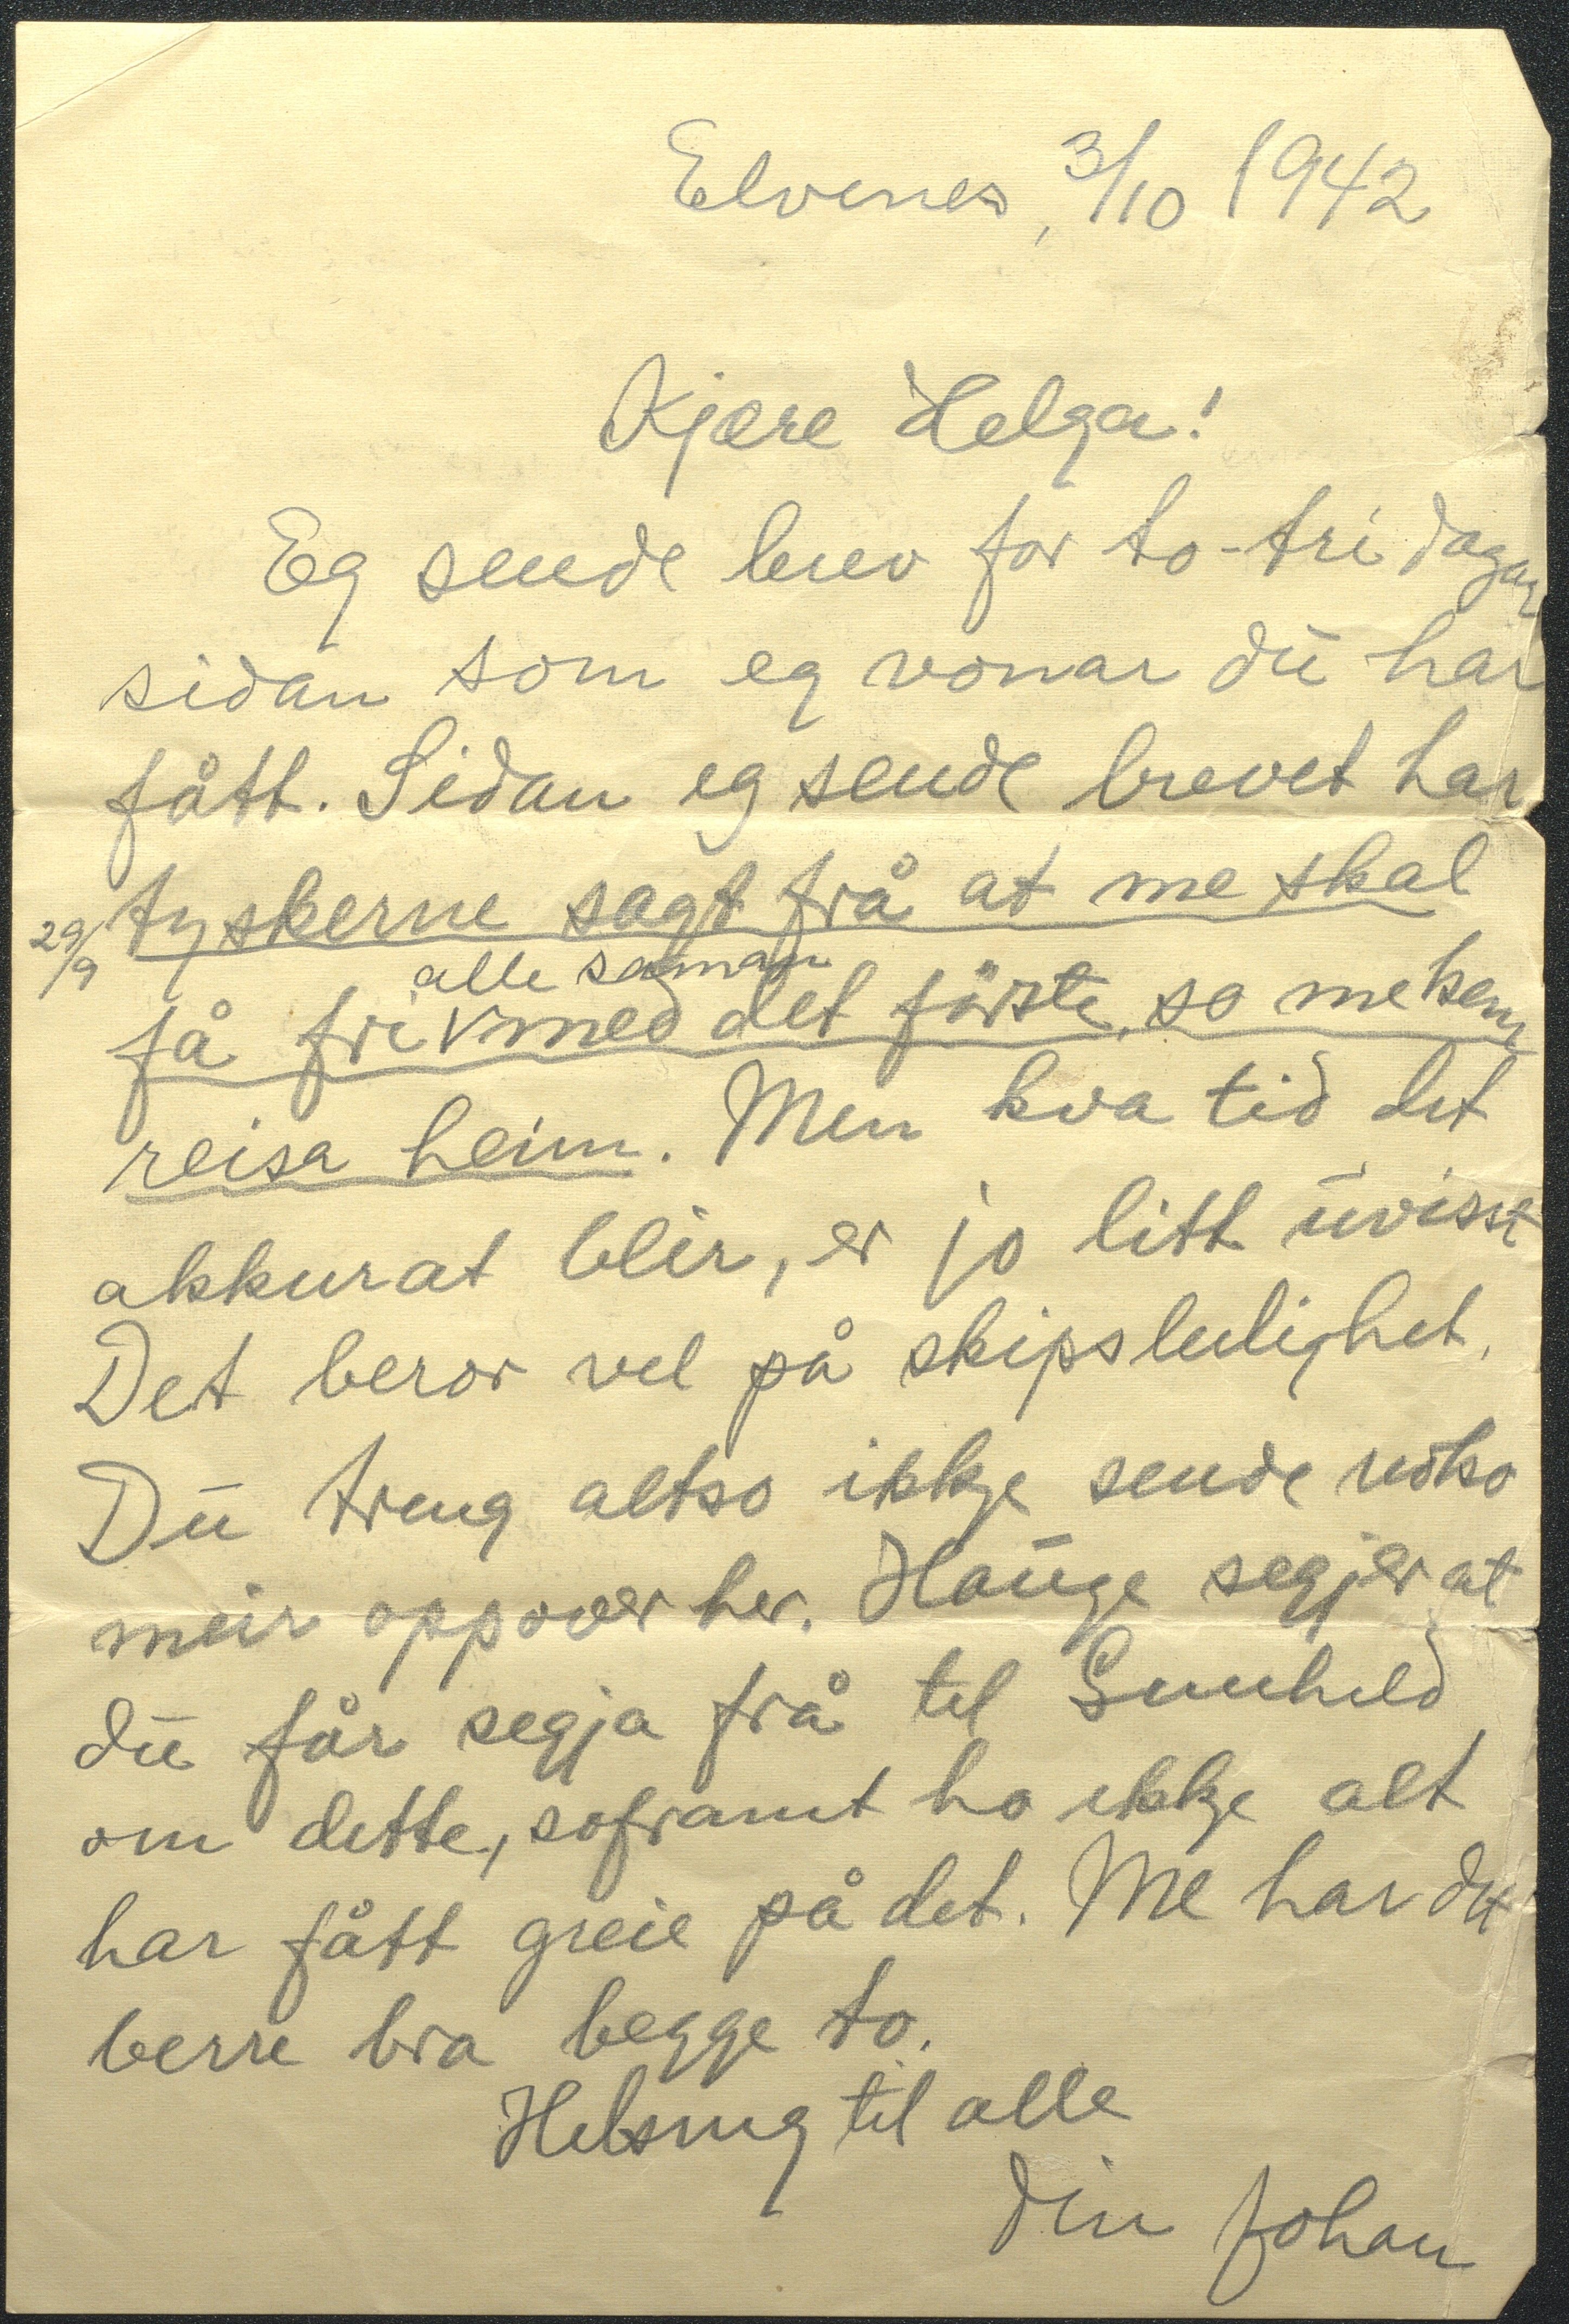 Elvenes, 3/10 1942
Kjære Helga!
Eg sende brev for to-tri dagar
sidan som eg vonar dū har
fått. Sidan eg sende brevet har
29/9 tyskerne sagt frå at me skal
alle saman
få fri v med det förste, so me kan
reisa heim. Men kva tid det
akkurat blir, er jo litt ūvisst
Det beror vel på skipsleilighet.
Dū treng altso ikkje sende noko
meir oppover her. Haūge segjer at
dū får segja frå til Gunhild
om dette, soframt ho ikkje alt
har fått greie på det. Me har det
berre bra begge to.
Helsing til alle
din Johan